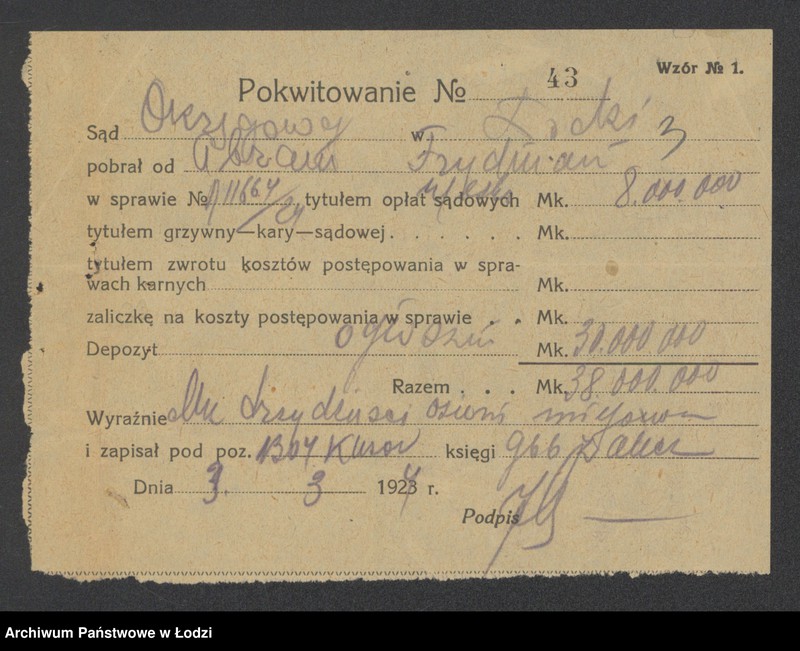 Wzór № 1.
Pokwitowanie № 43
Sąd Okręgowy w Łodzi
pobrał od Abram Frydman
w sprawie № 11664/21, tytułem opłat sądowych Mk. 8.000.000
tytułem grzywny—kary—sądowej . . . . . . Mk.
tytułem zwrotu kosztów postępowania w spra-
wach karnych Mk.
zaliczkę na koszty postępowania w sprawie . . Mk.
Depozyt ogłoszeń Mk. 30.000 000
Razem . . . Mk. 38 000.000
Wyraźnie Mk trzydzieści osiem miljonów
i zapisał pod poz. księgi
Dnia 3. 3 1924 r.
Podpis
Archiwum Państwowe w Łodzi